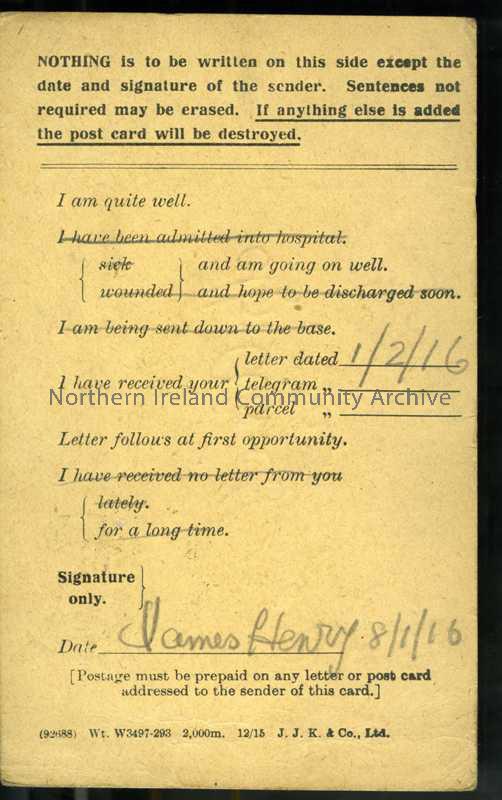 NOTHING is to be written on this side except the
date and signature of the sender. Sentences not
required may be erased. If anything else is added
the post card will be destroyed.
I am quite well.
I have been admitted into hospital.
sick } and am going on well.
wounded } and hope to be discharged soon.
I am being sent down to the base.
letter dated 1/2/16
I have received your { telegram „
parcel „
Northern Ireland Community Archive
Letter follows at first opportunity.
I have received no letter from you
lately.
for a long time.
Signature
only.
James Henry
Date 8/1/16
[Postage must be prepaid on any letter or post card
addressed to the sender of this card.]
(92688) Wt. W3497-293 2,000m. 12/15 J. J. K. & Co., Ltd.